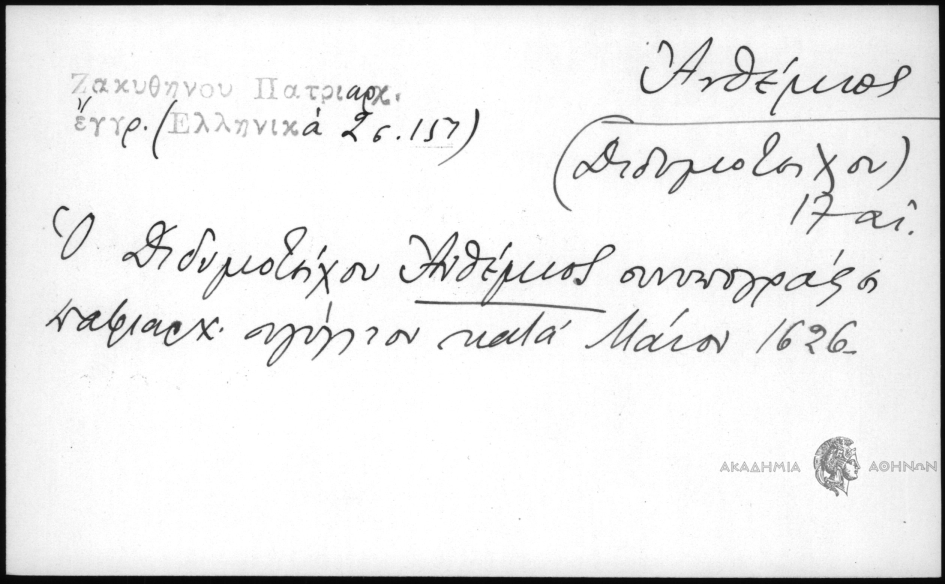 Ζακυθηνου Πατριαρχ.
ἔγγρ. (Ἑλληνικά 2 σ. 157)
Ἄνθιμος
(Διδυμοτείχου)
17 αἰ.
Ὁ Διδυμοτείχου Ἄνθιμος συνυπογράφει
πατριαρχ. σιγίλλιον κατά Μάϊον 1626.
ΑΚΑΔΗΜΙΑ ΑΘΗΝΩΝ